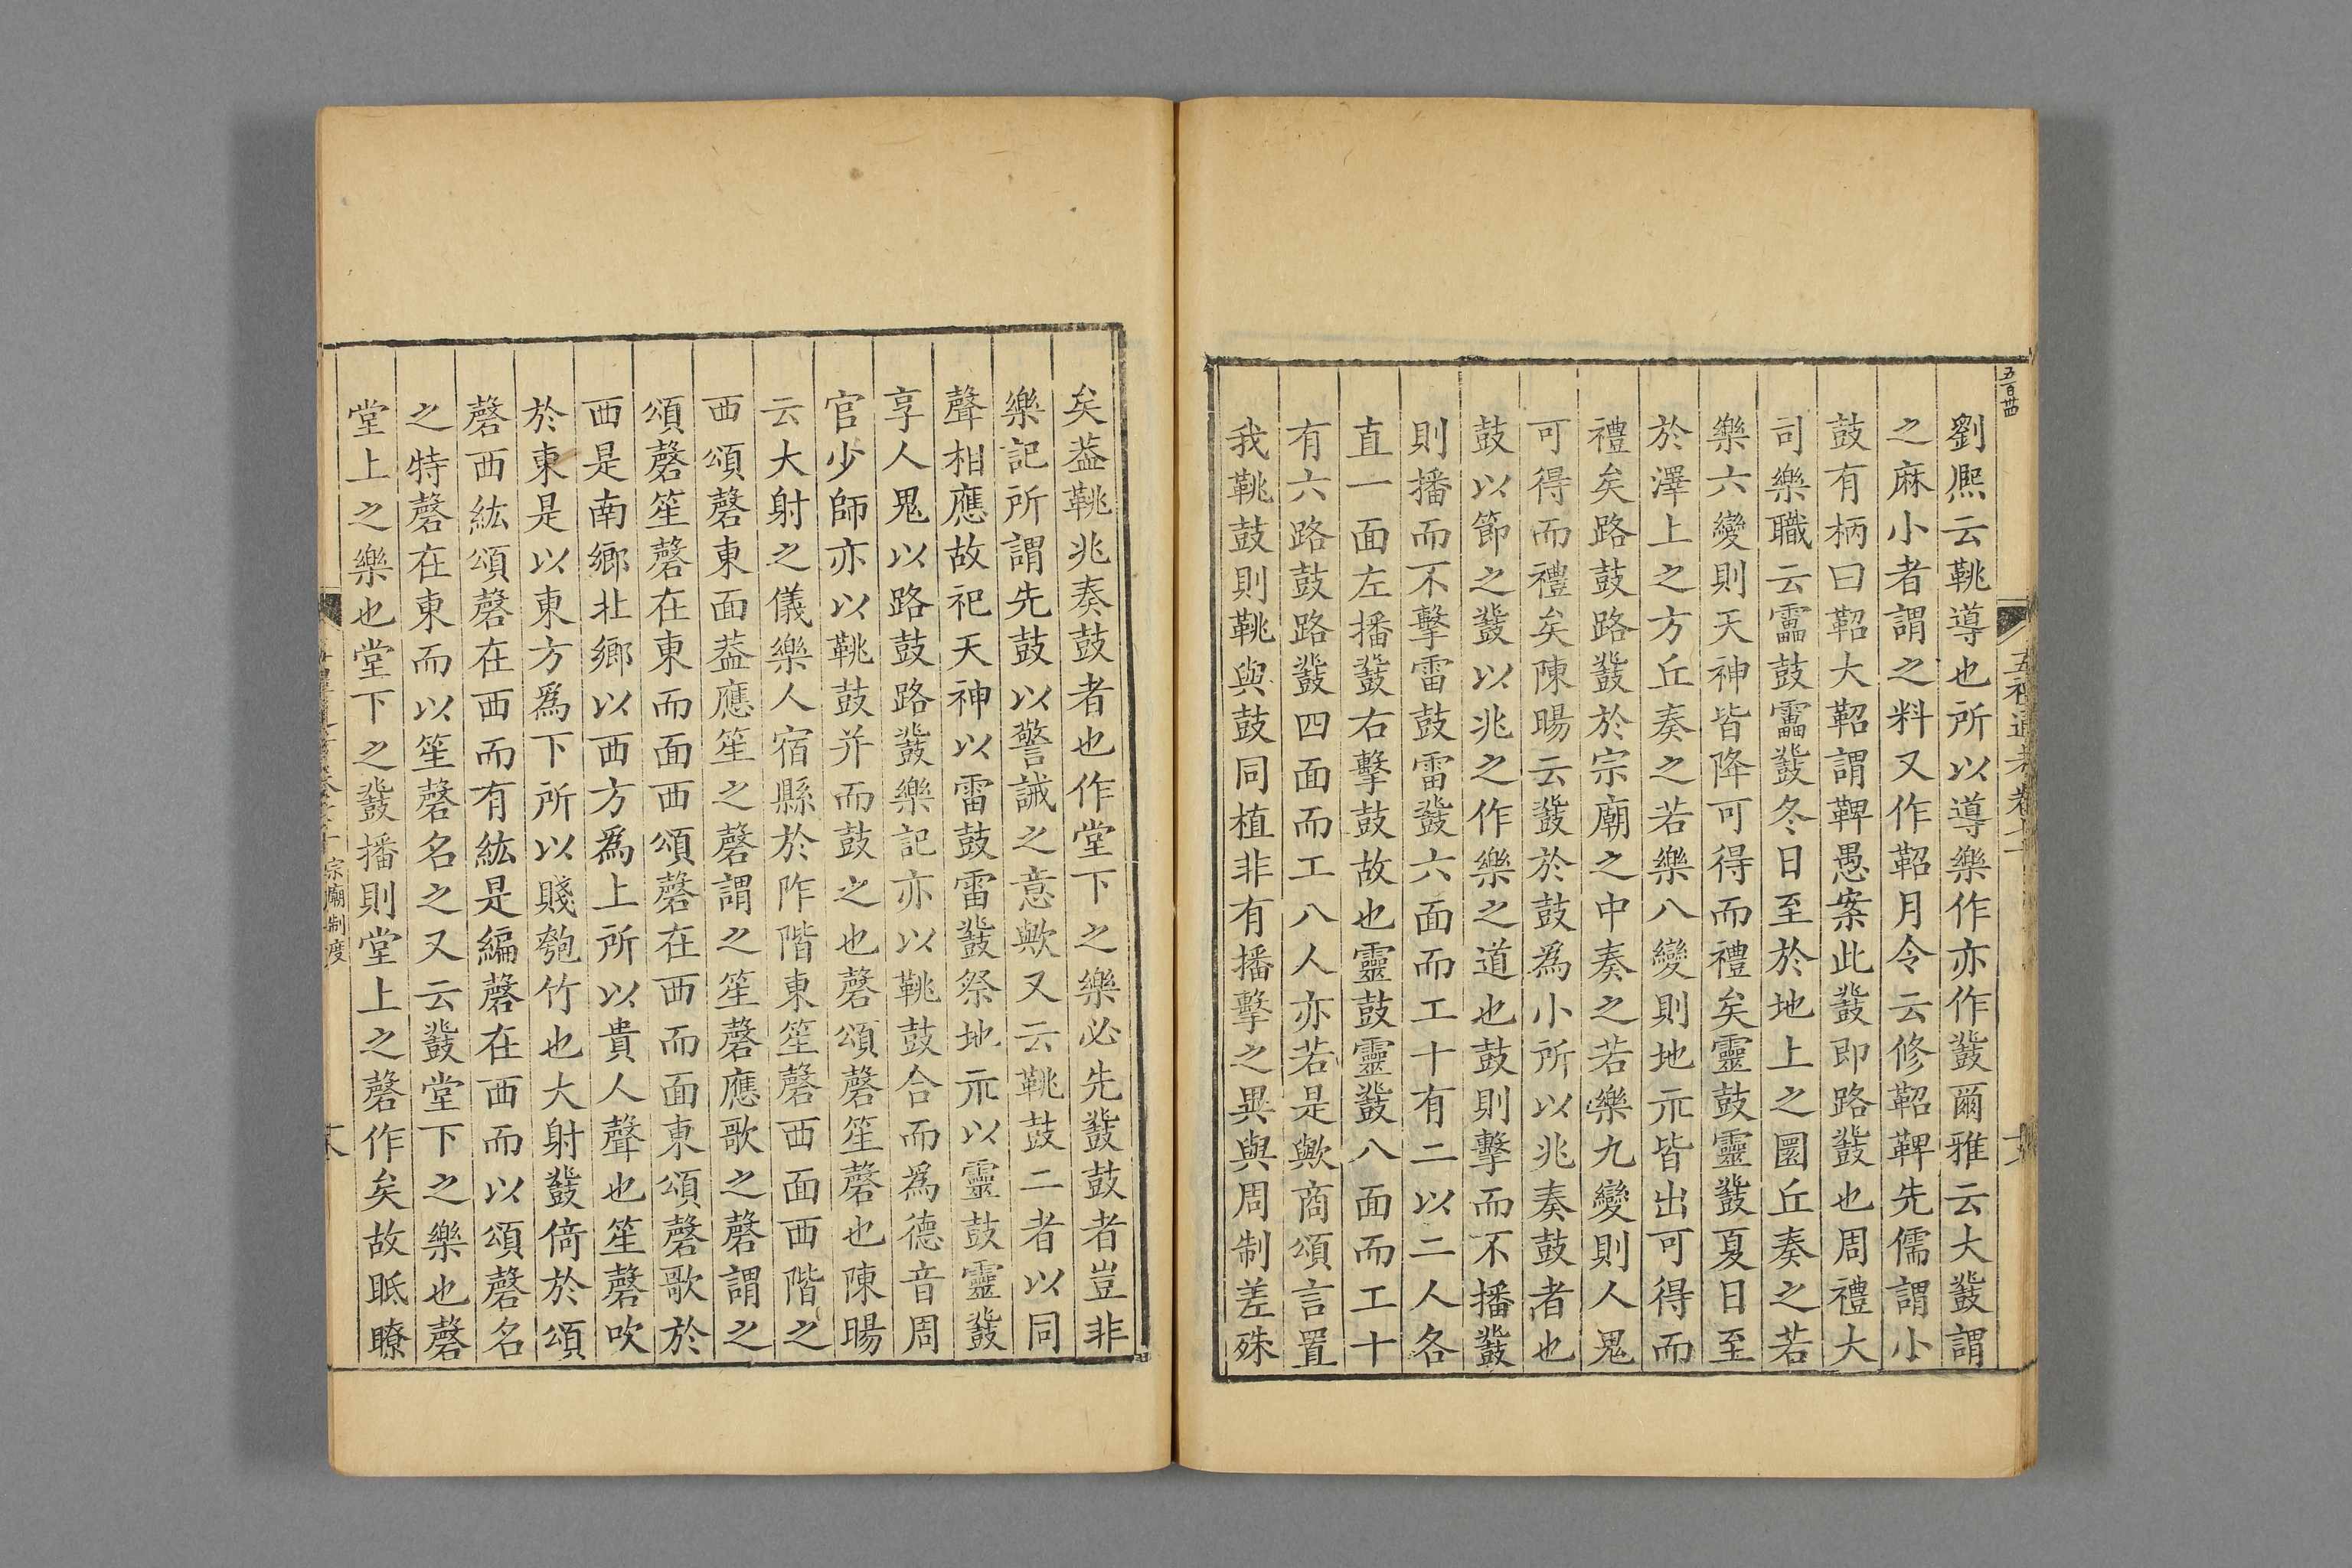 五百卌
劉熈云鞉導也所以導樂作亦作鼗爾雅云大鼗謂
之麻小者謂之料又作鞀月令云修鞀鞞先儒謂小
鼓有柄曰鞀大鞀謂鞞愚案此鼗即路鼗也周禮大
司樂職云靁鼓靁鼗冬日至於地上之圜丘奏之若
樂六變則天神皆降可得而禮矣靈鼓靈鼗夏日至
於澤上之方丘奏之若樂八變則地示皆出可得而
禮矣路鼓路鼗於宗廟之中奏之若樂九變則人鬼
可得而禮矣陳暘云鼗於鼓為小所以兆奏鼓者也
鼓以節之鼗以兆之作樂之道也鼓則擊而不播鼗
則播而不擊雷鼓雷鼗六面而工十有二以二人各
直一面左播鼗右擊鼓故也靈鼓靈鼗八面而工十
有六路鼓路鼗四面而工八人亦若是歟商頌言置
我鞉鼓則鞉與鼓同植非有播擊之異與周制差殊
矣葢鞉兆奏鼓者也作堂下之樂必先鼗鼓者豈非
樂記所謂先鼓以警誡之意歟又云鞉鼓二者以同
聲相應故祀天神以雷鼓雷鼗祭地示以靈鼓靈鼗
享人鬼以路鼓路鼗樂記亦以鞉鼓合而為德音周
官少師亦以鞉鼓并而鼓之也磬頌磬笙磬也陳暘
云大射之儀樂人宿縣於阼階東笙磬西面西階之
西頌磬東面葢應笙之磬謂之笙磬應歌之磬謂之
頌磬笙磬在東而面西頌磬在西而面東頌磬歌於
西是南鄉北鄉以西方爲上所以貴人聲也笙磬吹
於東是以東方爲下所以賤匏竹也大射鼗倚於頌
磬西紘頌磬在西而有紘是編磬在西而以頌磬名
之特磬在東而以笙磬名之又云鼗堂下之樂也磬
堂上之樂也堂下之鼗播則堂上之磬作矣故眡瞭
宗廟制度